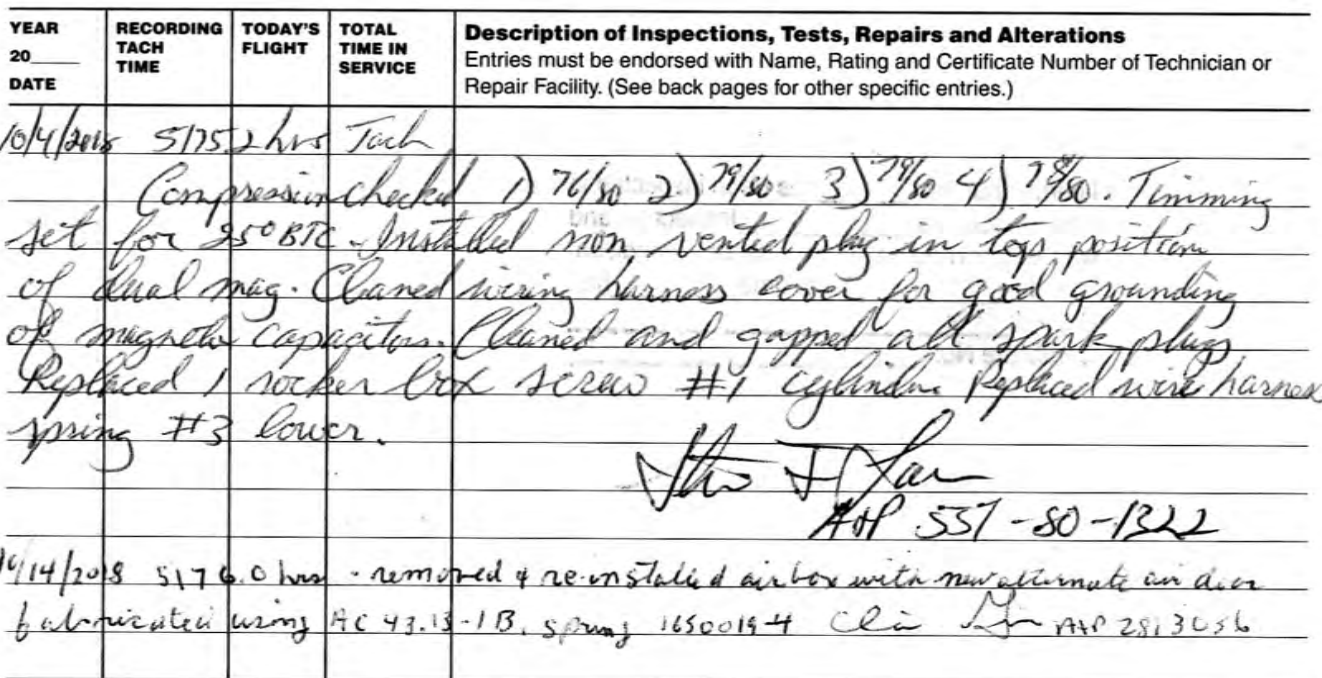 YEAR
20____
DATE
RECORDING
TACH
TIME
TODAY'S
FLIGHT
TOTAL
TIME IN
SERVICE
Description of Inspections, Tests, Repairs and Alterations
Entries must be endorsed with Name, Rating and Certificate Number of Technician or
Repair Facility. (See back pages for other specific entries.)
10/4/2018 5175.2 hrs Tach
Compression checked 1) 76/80 2) 79/80 3) 79/80 4) 78/80. Timming
set for 25° BTC. Installed non vented plug in top position
of dual mag. Cleaned wiring harness cover for good grounding
of magneto capacitors. Cleaned and gapped all spark plugs
Replaced 1 rocker box screw #1 cylinder Replaced wire harness
spring #3 lower.
A&P 537-80-1322
10/14/2018 5176.0 hrs - removed & re-installed airbox with new alternate air door
fabricated using AC 43.13-1B. spring 1650019-4 A&P 2813056